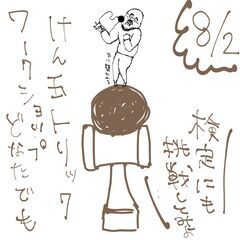 8/2
検定にも
挑戦するよ
けん玉トリック
ワークショップ
どなたでも